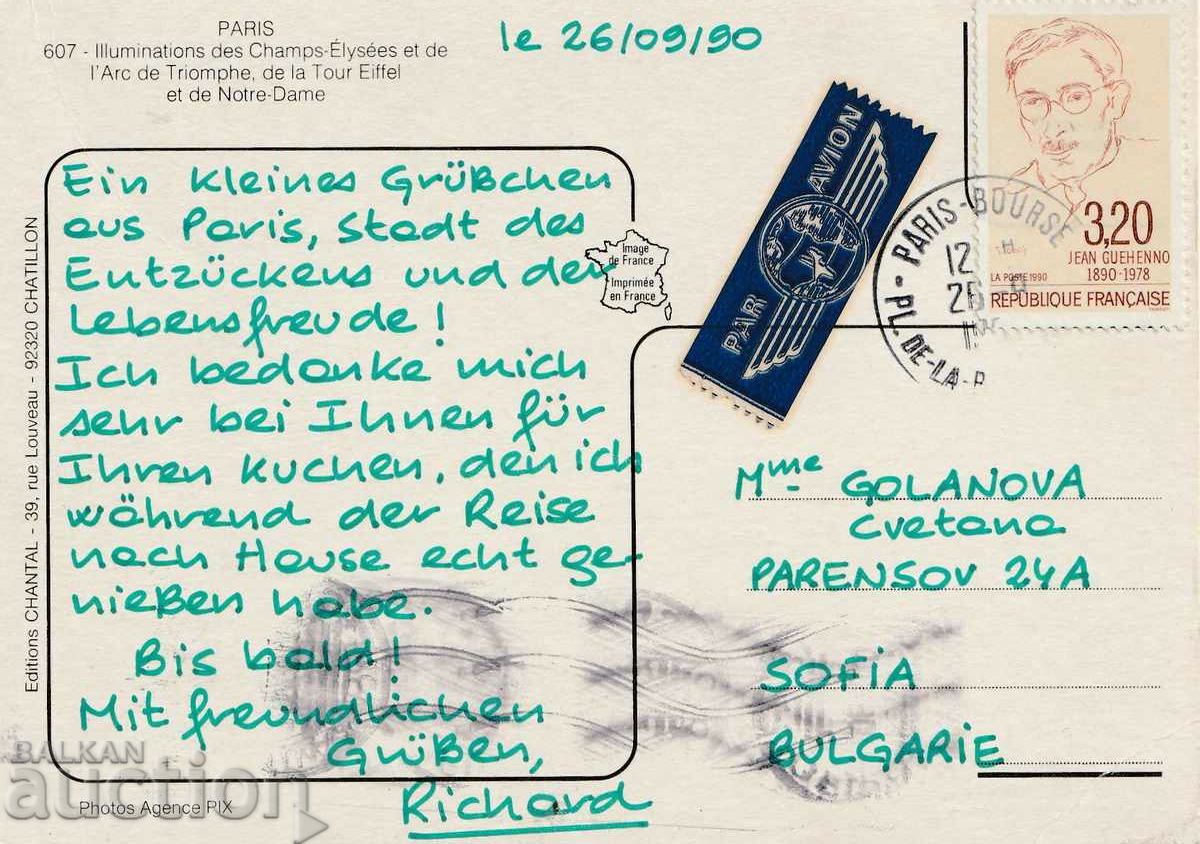 PARIS
607 - Illuminations des Champs-Élysées et de
l'Arc de Triomphe, de la Tour Eiffel
et de Notre-Dame
le 26/09/90
Ein kleines Grüßchen
aus Paris, Stadt des
Entzückens und der
Lebensfreude!
Ich bedanke mich
sehr bei Ihnen für
Ihren Kuchen, den ich
während der Reise
nach Hause echt ge-
nießen habe.
Bis bald!
Mit freundlichen
Grüßen,
Richard
Image
de France
Imprimée
en France
PAR AVION
3,20
JEAN GUEHENNO
1890-1978
LA POSTE 1990
RÉPUBLIQUE FRANÇAISE
PARIS-BOURSE
12 H
26
PL.DE-LA-
Mme GOLANOVA
Cvetana
PARENSOV 24A
SOFIA
BULGARIE
Editions CHANTAL - 39, rue Louveau - 92320 CHATILLON
Photos Agence PIX
BALKAN
auction